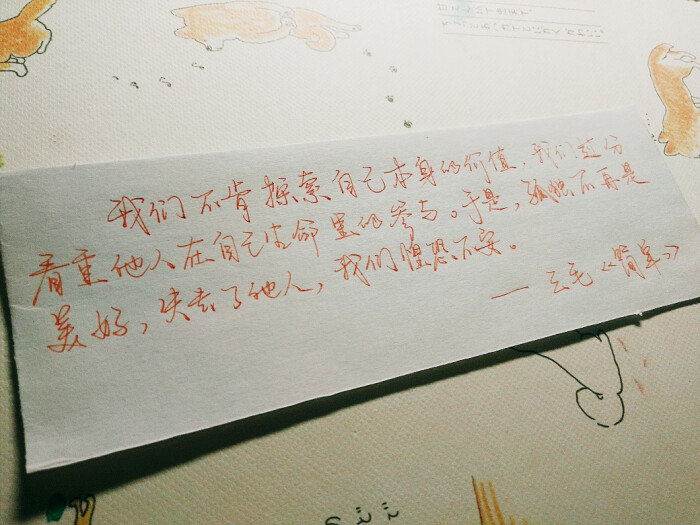 我们不肯探索自己本身的价值，我们过分
看重他人在自己生命里的参与。于是，孤独不再是
美好，失去了他人，我们惶恐不安。
——三毛《简单》